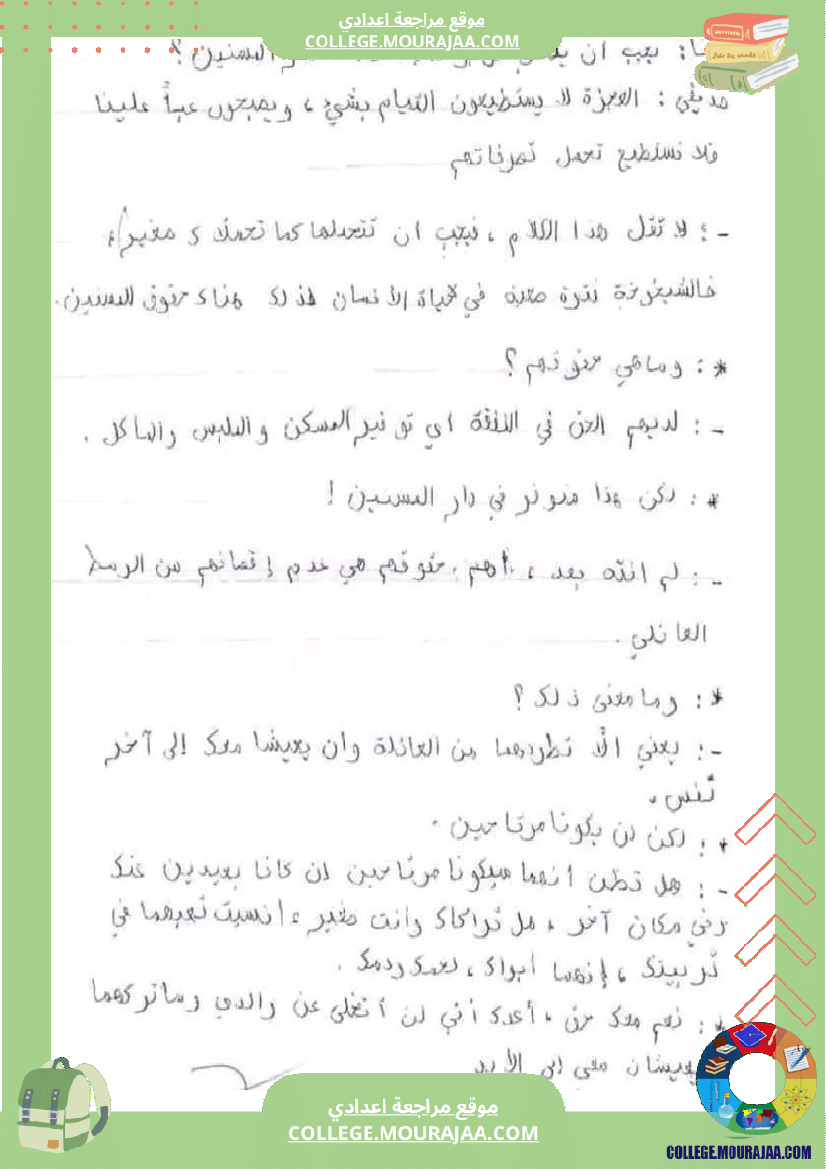 موقع مراجعة اعدادي
COLLEGE.MOURAJAA.COM
يجب ان المسنين؟
صديقي : العجزة لا يستطيعون القيام بشيء ، ويصبحون عبأً علينا
فلا نستطيع تحمل تصرفاتهم
- : لا تقل هذا الكلام ، فيجب ان تتحملها كما تحملاك صغيراً،
فالشيخوخة فترة صعبة في حياة الأنسان لذلك هناك حقوق للمسنين.
* : وماهي حقوقهم ؟
- : لديهم الحق في النفقة اي توفير المسكن والملبس والمأكل .
* : لكن هذا متوفر في دار المسنين !
- : لم انته بعد ، أهم حقوقهم هي عدم إقصائهم من الوسط
العائلي .
* : وما معنى ذلك ؟
- : يعني الّا تطردهما من العائلة وان يعيشا معك إلى آخر
نفس .
* : لكن لن يكونا مرتاحين .
- : هل تظن انهما سيكونا مرتاحين ان كانا بعيدين عنك
وفي مكان آخر ، هل تركاك وانت صغير ، أنسيت تعبهما في
تربيتك ، إنهما ابواك ، لحمك ودمك .
* : نعم معك حق ، أعدك أني لن أتخلى عن والدي وسأتركهما
يعيشان معي الى الأبد
موقع مراجعة اعدادي
COLLEGE.MOURAJAA.COM
COLLEGE.MOURAJAA.COM